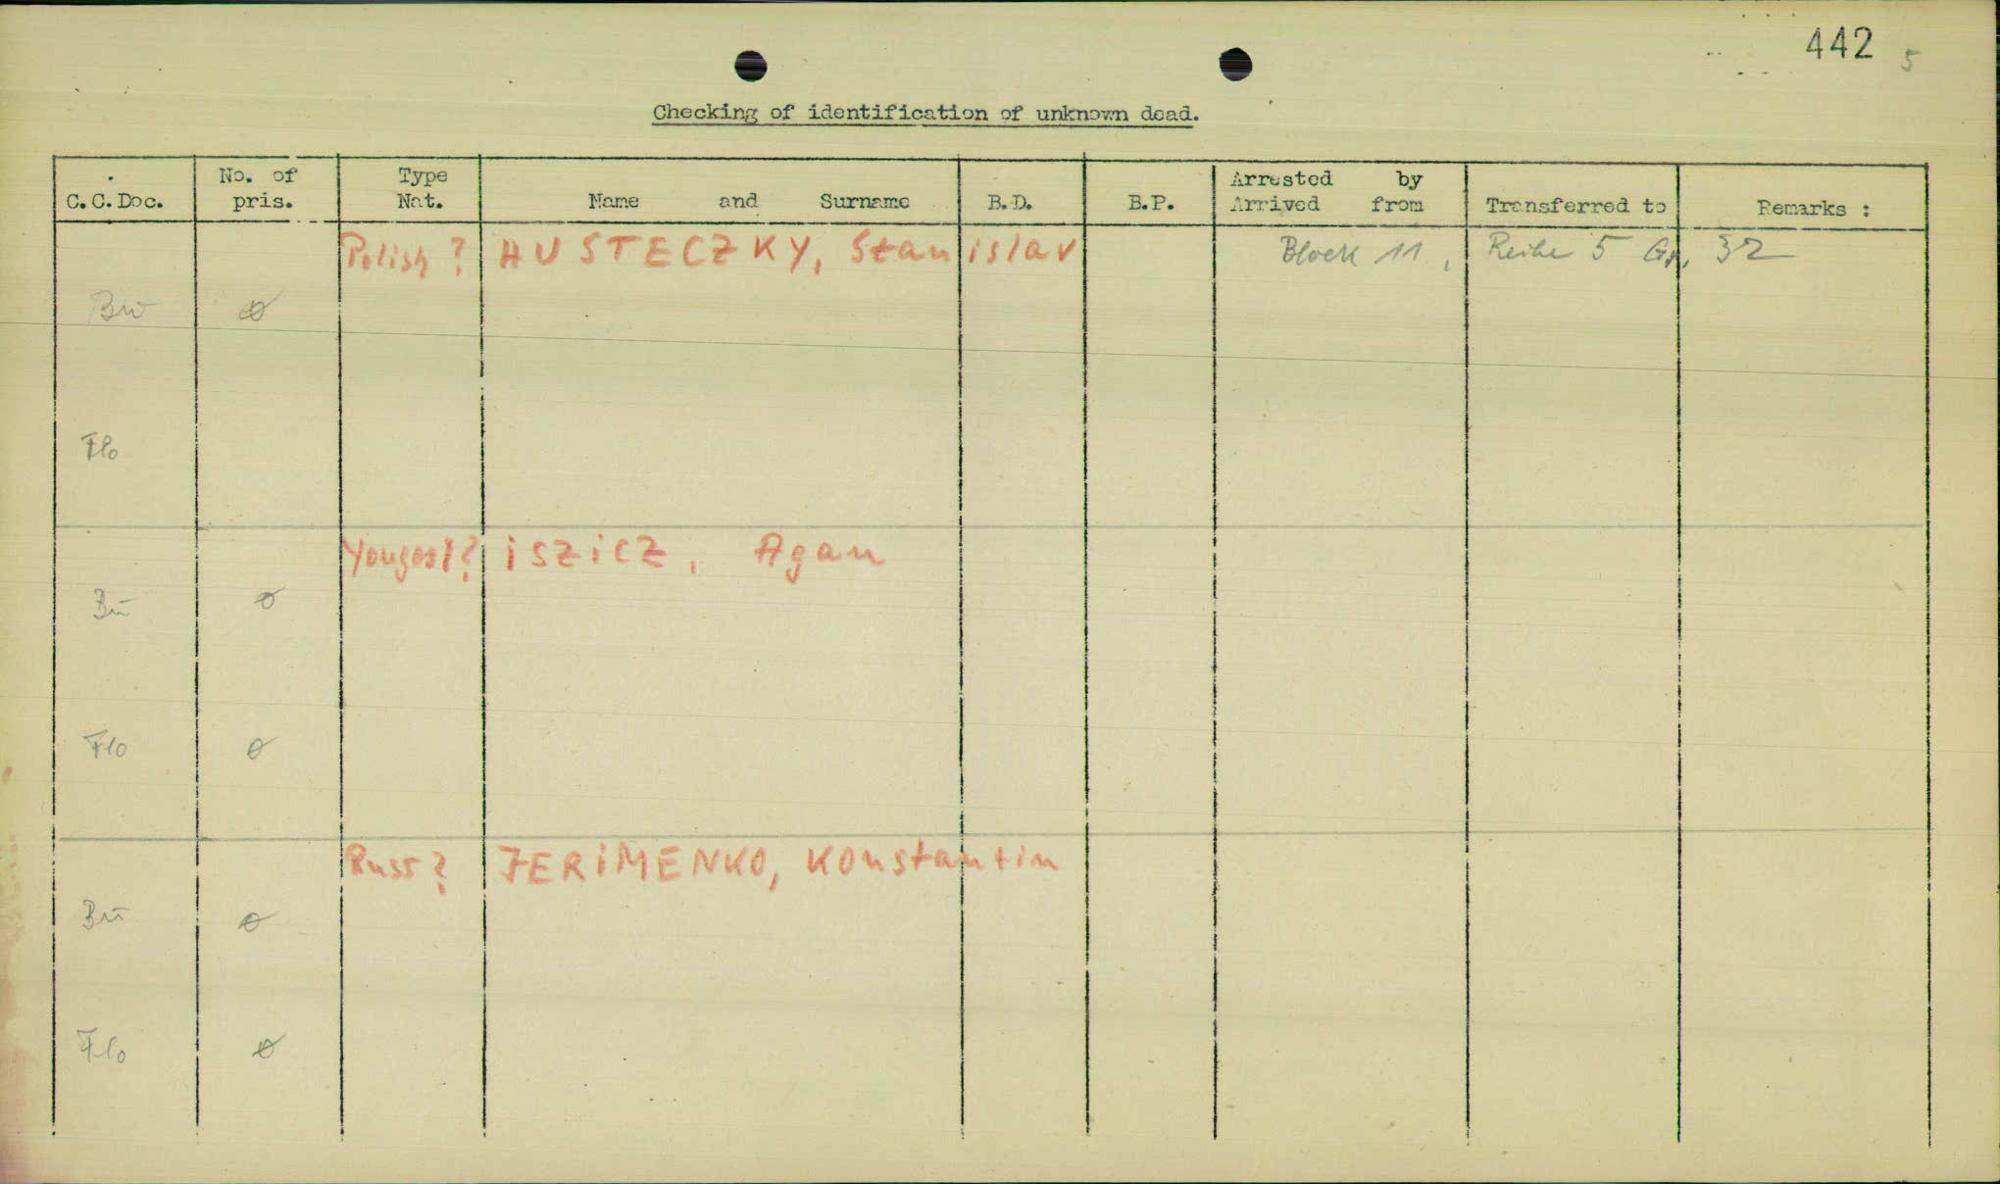 442 5
Checking of identification of unknown dead.
C.C.Doc. No. of pris. Type Nat. Name and Surname B.D. B.P. Arrested by Arrived from Transferred to Remarks :
Polish ? HUSTECZKY, Stanislav Block 11, Reihe 5 Gr. 32
Bu ø
Flo
Yougosl? iSZiCZ, Agan
Bu ø
Flo ø
Russ? JERiMENKO, Konstantin
Bu ø
Flo ø